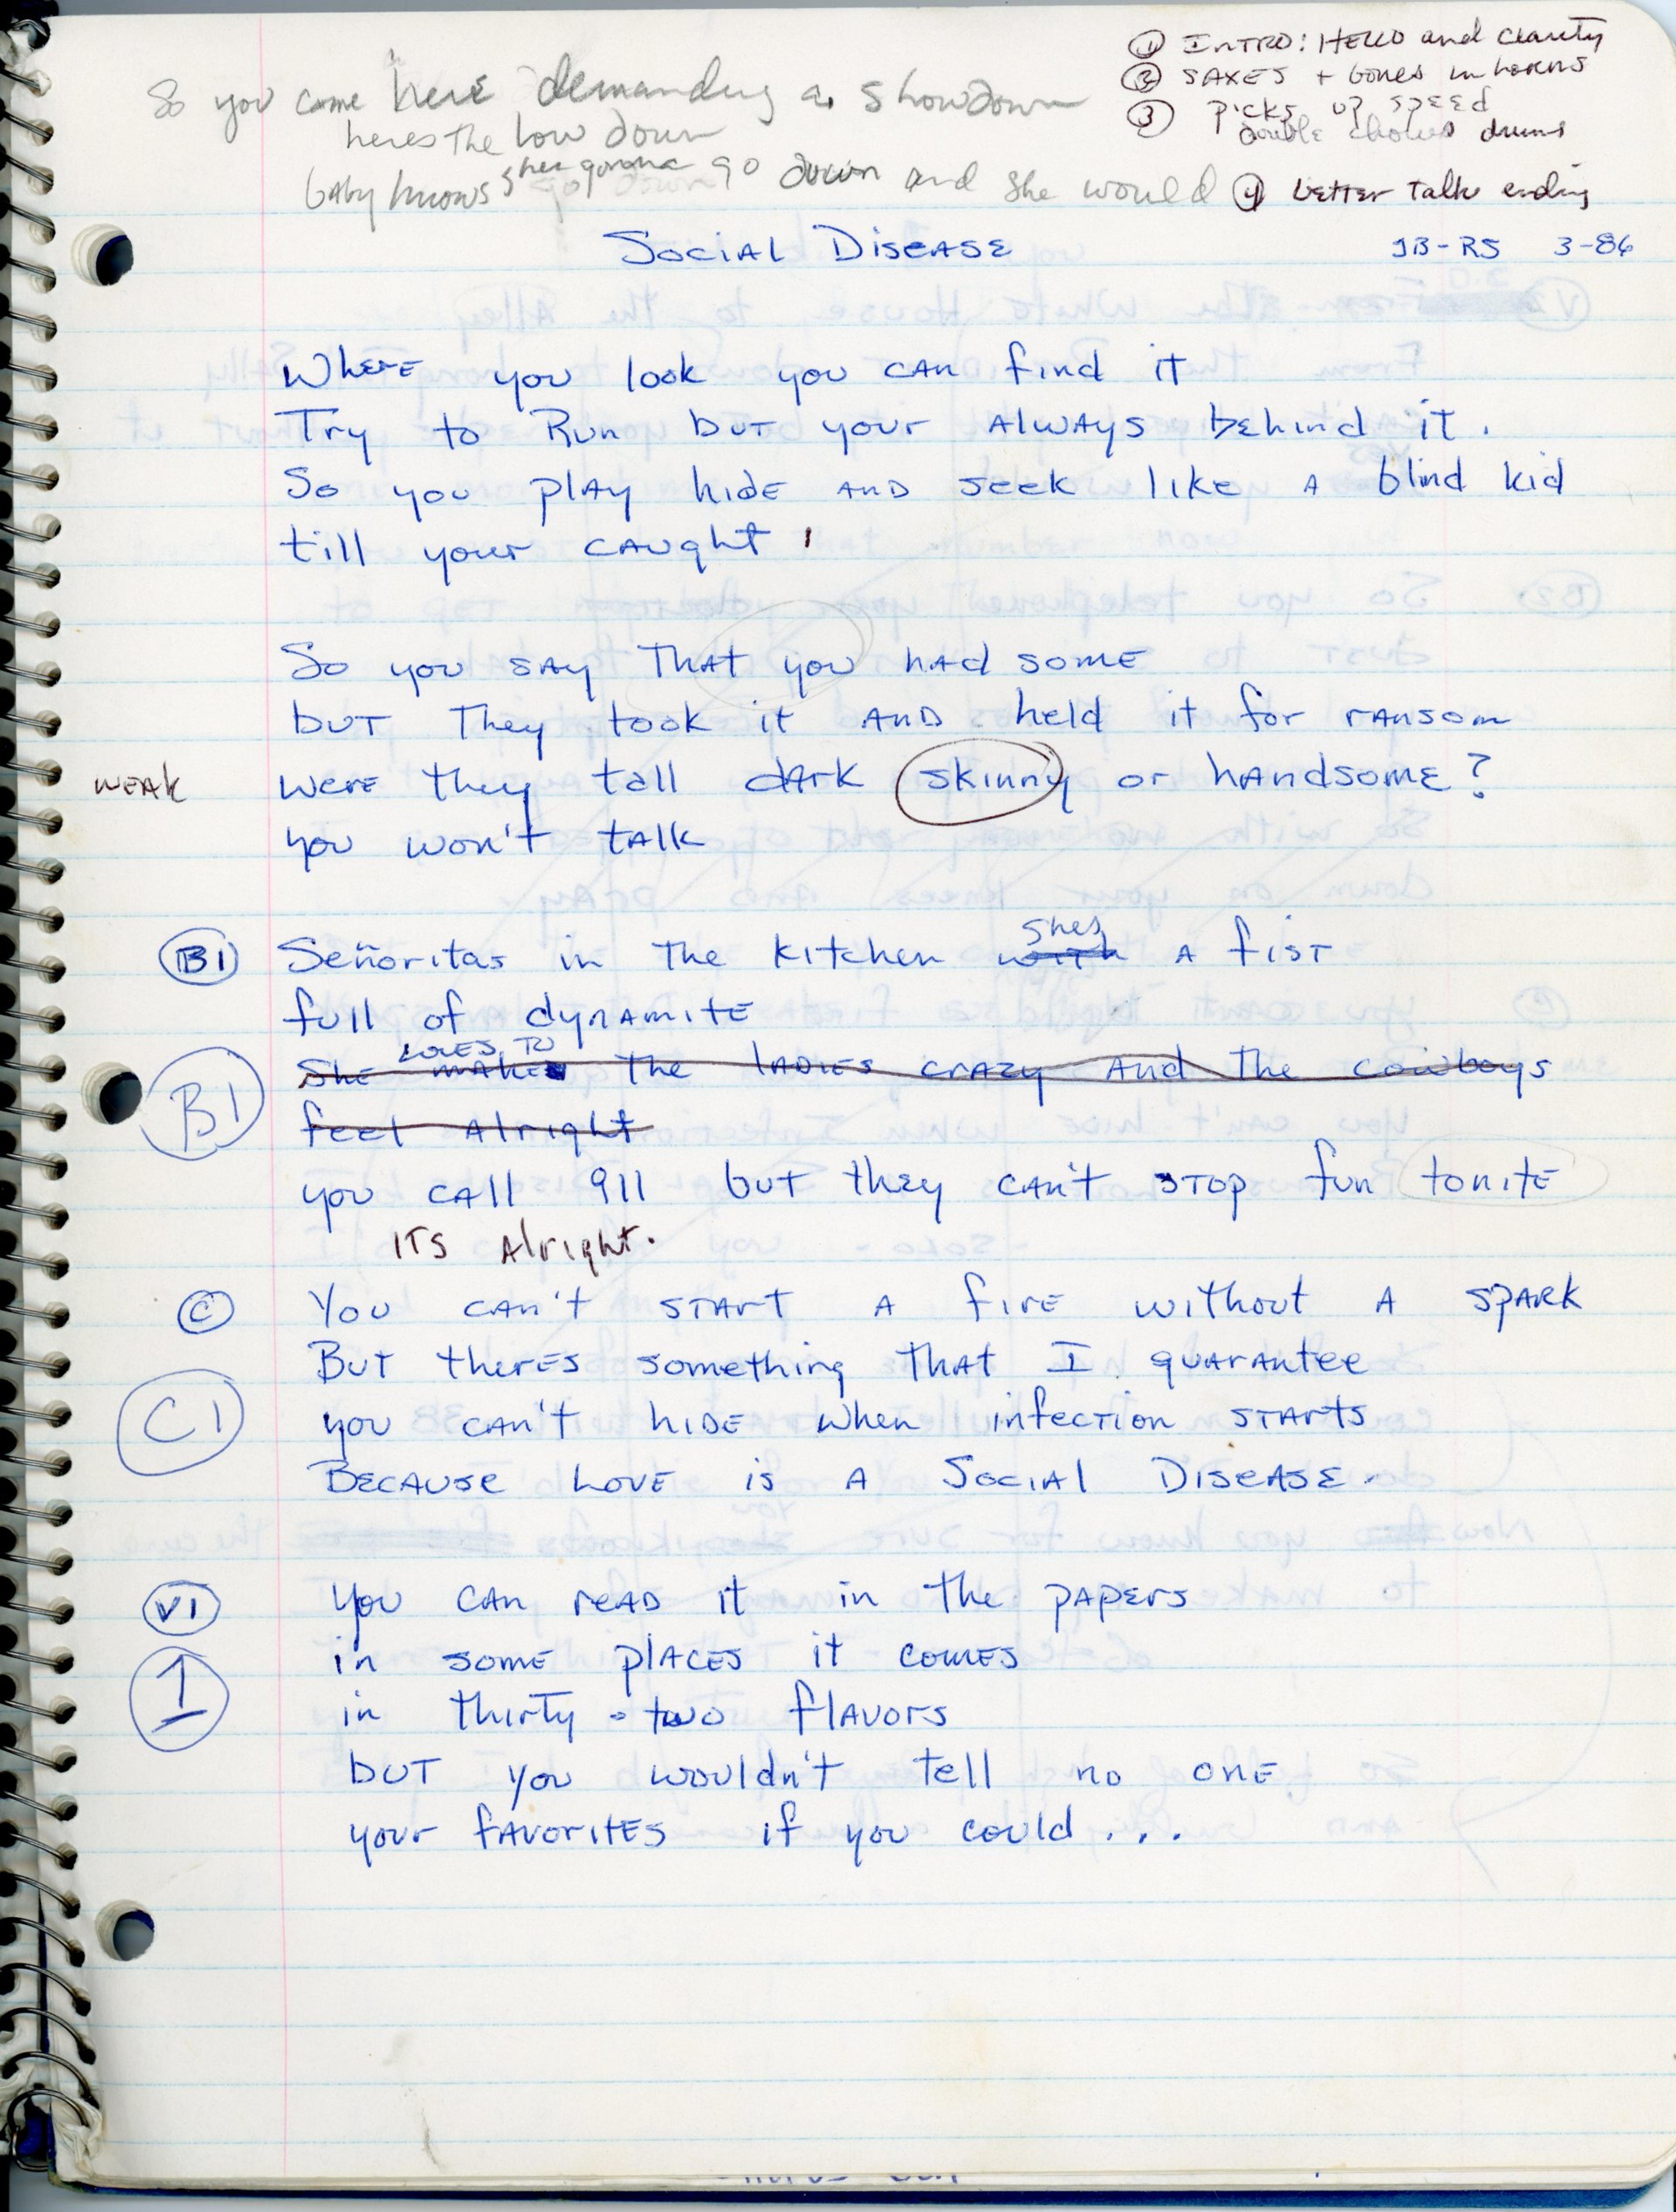 ① INTRO: HELLO and clarity
② SAXES + bones in horns
③ picks up speed
double chorus drums
So you come here demanding a showdown
heres the low down
baby knows shes gonna go down and she would
④ better talk ending
Social Disease
JB-RS 3-86
Where you look you can find it
Try to Run but your always behind it.
So you play hide and seek like a blind kid
till your caught
So you say that you had some
but They took it and held it for ransom
weak
were they tall dark skinny or handsome?
you won't talk
B1 Señoritas in the kitchen with shes a fist
full of dynamite
B1
She makes loves to the ladies crazy and the cowboys
feel alright
you call 911 but they can't stop fun tonite
ITS Alright.
C You can't start a fire without a spark
But theres something that I guarantee
C1
you can't hide when infection starts
Because Love is a Social Disease.
V1 You can read it in the papers
in some places it comes
1
in thirty-two flavors
but you wouldn't tell no one
your favorites if you could...